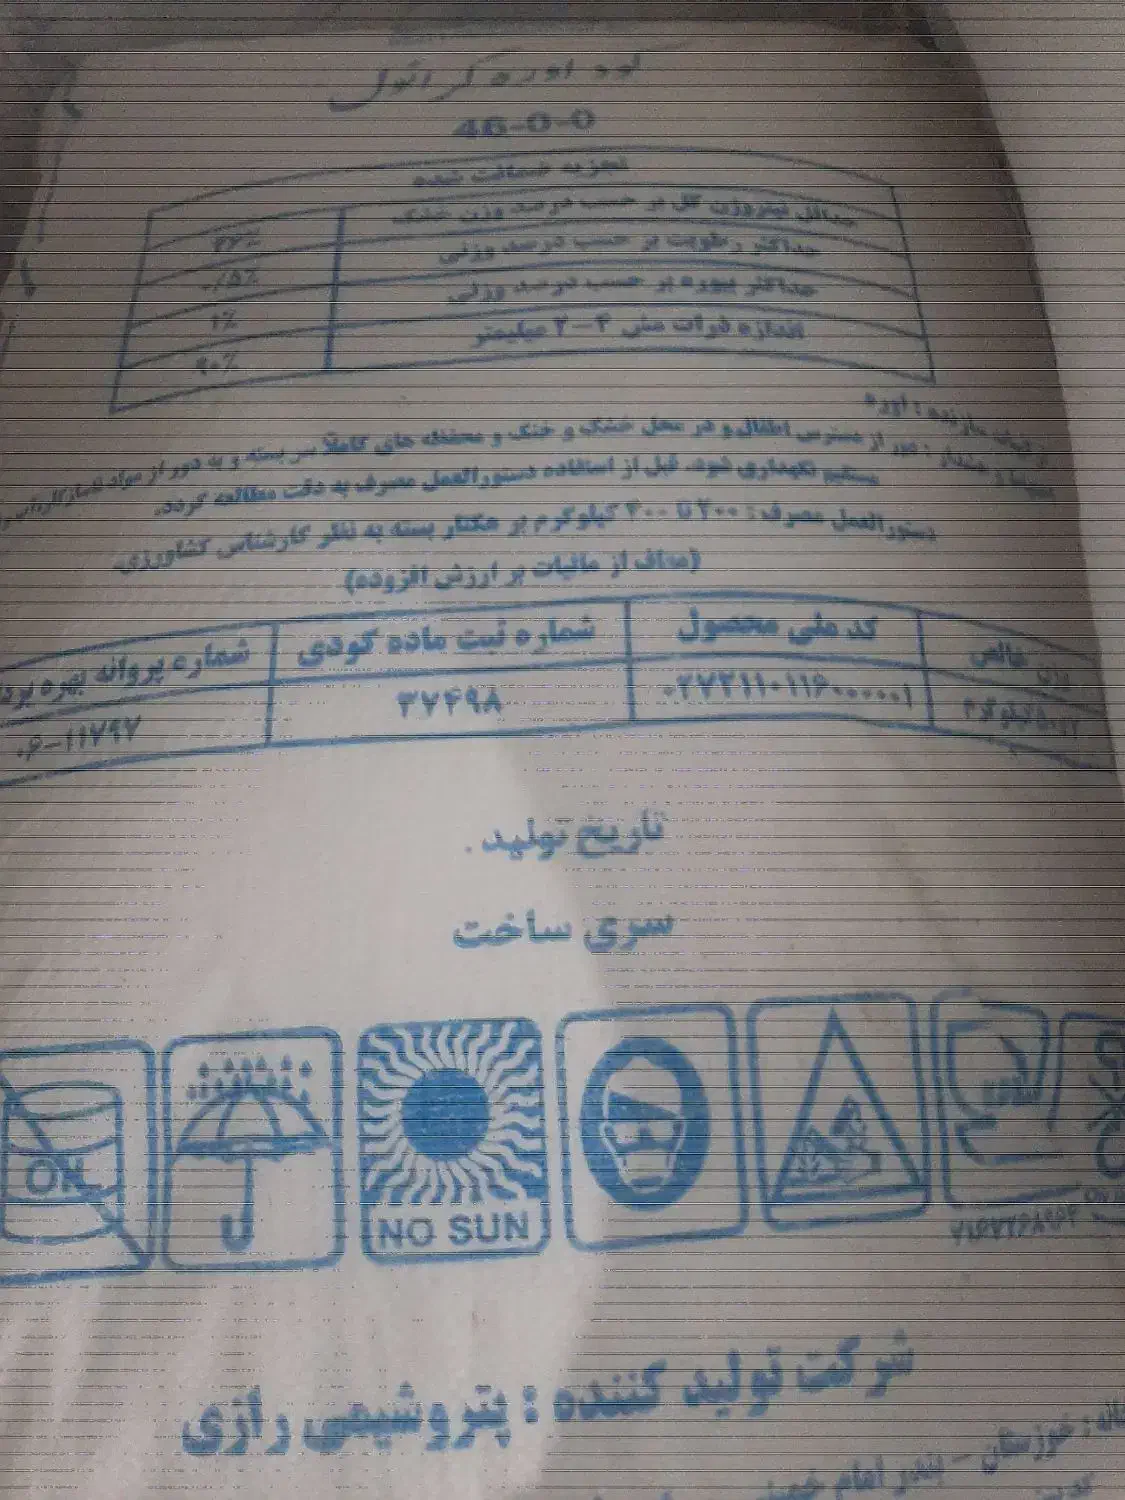 کود اوره گرانول
46-0-0
تجزیه ضمانت شده
حداقل نیتروژن کل بر حسب درصد وزن خشک ۴۶٪
حداکثر رطوبت بر حسب درصد وزنی ۰/۵٪
حداکثر بیوره بر حسب درصد وزنی ۱٪
اندازه ذرات مش ۴-۲ میلیمتر ۹۰٪
: اوره
: دور از دسترس اطفال و در محل خشک و خنک و محفظه های کاملاً سر بسته و به دور از مواد
مستقیم نگهداری شود. قبل از استفاده دستورالعمل مصرف به دقت مطالعه گردد.
دستورالعمل مصرف : ۲۰۰ تا ۴۰۰ کیلوگرم بر هکتار بسته به نظر کارشناس کشاورزی.
(معاف از مالیات بر ارزش افزوده)
خالص کد ملی محصول شماره ثبت ماده کودی شماره پروانه بهره
کیلوگرم ۳۷۴۹۸ ۰۶-۱۱۷۹۷
تاریخ تولید
سری ساخت
NO SUN
شرکت تولید کننده : پتروشیمی رازی
خوزستان - بندر امام